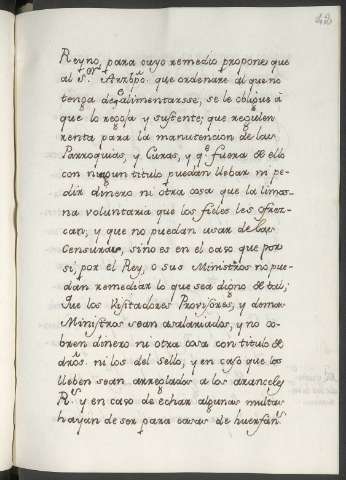 42
Reyno, para cuyo remedio propone que
al S.or Arzbpo. que ordenare al que no
tenga de q alimentarsse, se le obligue à
que lo recoja y sustente; que regulen
renta para la manutencion de las
Parroquias, y Curas, y q.e fuera de ello
con ningun titulo puedan llebar ni pe-
dir dinero ni otra cosa que la limos-
na voluntaria que los fieles les ofrez-
can; y que no puedan usar de las
Censuras, sino es en el caso que por
si, por el Rey, o sus Ministros no pue-
dan remediar lo que sea digno de tal;
Que los Visitadores Provisores, y demas
Ministros sean asalariados, y no co-
bren dinero ni otra cosa con titulo de
dros. ni los del sello; y en caso que los
lleben sean arreglados a los aranceles
R.s y en caso de echar algunas multas
hayan de ser para casas de huerfan.s